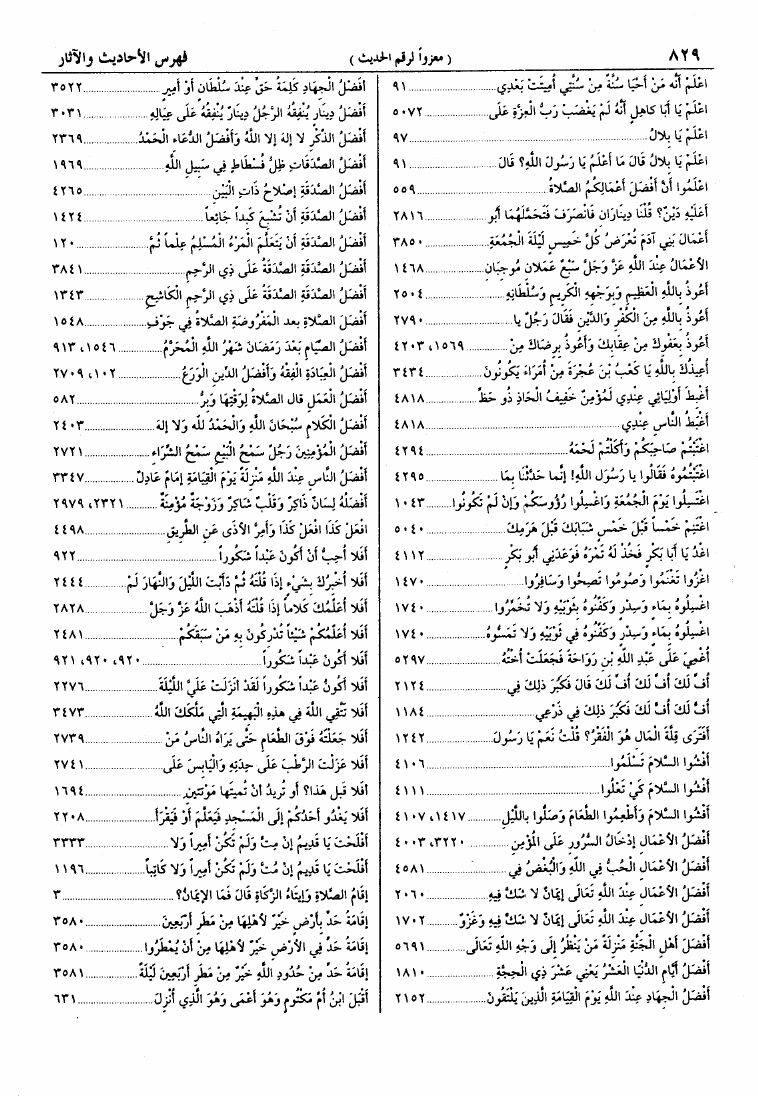 ٨٢٩ ( معزواً لرقم الحديث ) فهرس الأحاديث والآثار
اعْلَمْ أَنَّه مَنْ أَحْيَا سُنَّةً مِنْ سُنَّتِي أُمِيتَتْ بَعْدِي ٩١
اعْلَمْ يَا أَبَا كاهِلٍ أَنَّهُ لَمْ يَغْضَبْ رَبُّ الْعِزَّةِ عَلَى ٥٠٧٢
اعْلَمْ يَا بِلالُ ٩٧
اعْلَمْ يَا بِلالُ قَالَ مَا أَعْلَمُ يَا رَسُولَ اللَّهِ؟ قَالَ ٩١
اعْلَمُوا أَنَّ أَفْضَلَ أَعْمَالِكُمُ الصَّلاةُ ٥٥٩
أَعَلَيْهِ دَيْنٌ؟ قُلْنَا دِينَارَانِ فَانْصَرَفَ فَتَحَمَّلَهُمَا أَبُو ٢٨١٦
أَعْمَالَ بَنِي آدَمَ تُعْرَضُ كُلَّ خَمِيسٍ لَيْلَةَ الْجُمُعَةِ ٣٨٥٠
الأَعْمَالُ عِنْدَ اللَّهِ عَزَّ وَجَلَّ سَبْعٌ عَمَلانِ مُوجِبَانِ ١٤٦٨
أَعُوذُ بِاللَّهِ الْعَظِيمِ وَبِوَجْهِهِ الْكَرِيمِ وَسُلْطَانِهِ ٢٥٠٤
أَعُوذُ بِاللَّهِ مِنَ الْكُفْرِ وَالدَّيْنِ فَقَالَ رَجُلٌ يا ٢٧٩٠
أَعُوذُ بِعَفْوِكَ مِنْ عِقَابِكَ وَأَعُوذُ بِرِضَاكَ مِنْ ١٥٦٩، ٤٢٠٣
أُعِيذُكَ بِاللَّهِ يَا كَعْبُ بْنَ عُجْرَةَ مِنْ أُمَرَاءَ يَكُونُونَ ٣٤٣٤
أَغْبَطَ أَوْلِيَائِي عِنْدِي لَمُؤْمِنٌ خَفِيفُ الْحَاذِ ذُو حَظٍّ ٤٨١٨
أَغْبَطُ النَّاسِ عِنْدِي ٤٨١٨
اغْتَبْتُمْ صَاحِبَكُمْ وَأَكَلْتُمْ لَحْمَهُ ٤٢٩٤
اغْتَبْتُمُوهُ فَقَالُوا يا رَسُولَ اللَّهِ! إِنَّما حَدَّثْنَا بِمَا ٤٢٩٥
اغْتَسِلُوا يَوْمَ الْجُمُعَةِ وَاغْسِلُوا رُؤُوسَكُمْ وَإِنْ لَمْ تَكُونُوا ١٠٤٣
اغْتَنِمْ خَمْساً قَبْلَ خَمْسٍ شَبَابَكَ قَبْلَ هَرَمِكَ ٥٠٤٠
اغْدُ يَا أَبَا بَكْرٍ فَخُذْ لَهُ تَمْرَهُ فَوَعَدَنِي أَبُو بَكْرٍ ٤١١٢
اغْزُوا تَغْنَمُوا وَصُومُوا تَصِحُّوا وَسَافِرُوا ١٤٧٠
اغْسِلُوهُ بِمَاءٍ وَسِدْرٍ وَكَفِّنُوهُ بِثَوْبَيْهِ وَلا تُخَمِّرُوا ١٧٤٠
اغْسِلُوهُ بِمَاءٍ وَسِدْرٍ وَكَفِّنُوهُ فِي ثَوْبَيْهِ وَلا تَمَسُّوهُ ١٧٤٠
أُغْمِيَ عَلَى عَبْدِ اللَّهِ بْنِ رَوَاحَةَ فَجَعَلَتْ أُخْتُهُ ٥٢٩٧
أُفٍّ لَكَ أُفٍّ لَكَ أُفٍّ لَكَ قَالَ فَكَبُرَ ذَلِكَ فِي ٢١٢٤
أُفٍّ لَكَ أُفٍّ لَكَ فَكَبُرَ ذَلِكَ فِي ذَرْعِي ١١٨٤
أَفَتَرَى قِلَّةَ الْمَالِ هُوَ الْفَقْرُ؟ قُلْتُ نَعَمْ يَا رَسُولَ ١٢٤٢
أَفْشُوا السَّلامَ تَسْلَمُوا ٤١٠٦
أَفْشُوا السَّلامَ كَيْ تَعْلُوا ٤١١١
أَفْشُوا السَّلامَ وَأَطْعِمُوا الطَّعَامَ وَصَلُّوا بِاللَّيْلِ ١٤١٧، ٤١٠٧
أَفْضَلُ الأَعْمَالِ إِدْخَالُ السُّرُورِ عَلَى الْمُؤْمِنِ ٣٢٢٠، ٤٠٠٣
أَفْضَلُ الأَعْمَالِ الْحُبُّ فِي اللَّهِ وَالْبُغْضُ فِي ٤٥٨١
أَفْضَلُ الأَعْمَالِ عِنْدَ اللَّهِ تَعَالَى إِيمَانٌ لا شَكَّ فِيهِ ٢٠٦٠
أَفْضَلُ الأَعْمَالِ عِنْدَ اللَّهِ تَعَالَى إِيمَانٌ لا شَكَّ فِيهِ وَغَزْوٌ ١٧٠٢
أَفْضَلَ أَهْلِ الْجَنَّةِ مَنْزِلَةً مَنْ يَنْظُرُ إِلَى وَجْهِ اللَّهِ تَعَالَى ٥٦٩١
أَفْضَلُ أَيَّامِ الدُّنْيَا الْعَشْرُ يَعْنِي عَشْرَ ذِي الْحِجَّةِ ١٨١٠
أَفْضَلُ الْجِهَادِ عِنْدَ اللَّهِ يَوْمَ الْقِيَامَةِ الَّذِينَ يَلْتَقُونَ ٢١٥٢
أَفْضَلُ الْجِهَادِ كَلِمَةُ حَقٍّ عِنْدَ سُلْطَانٍ أَوْ أَمِيرٍ ٣٥٢٢
أَفْضَلُ دِينَارٍ يُنْفِقُهُ الرَّجُلُ دِينَارٌ يُنْفِقُهُ عَلَى عِيَالِهِ ٣٠٣١
أَفْضَلُ الذِّكْرِ لا إِلهَ إلا اللَّهُ وَأَفْضَلُ الدُّعَاءِ الْحَمْدُ ٢٣٦٩
أَفْضَلُ الصَّدَقَاتِ ظِلُّ فُسْطَاطٍ فِي سَبِيلِ اللَّهِ ١٩٦٩
أَفْضَلُ الصَّدَقَةِ إِصْلاحُ ذَاتِ الْبَيْنِ ٤٢٦٥
أَفْضَلُ الصَّدَقَةِ أَنْ تُشْبِعَ كَبِداً جَائِعاً ١٤٢٤
أَفْضَلُ الصَّدَقَةِ أَنْ يَتَعَلَّمَ الْمَرْءُ الْمُسْلِمُ عِلْماً ثُمَّ ١٢٠
أَفْضَلُ الصَّدَقَةِ الصَّدَقَةُ عَلَى ذِي الرَّحِمِ ٣٨٤١
أَفْضَلُ الصَّدَقَةِ الصَّدَقَةُ عَلَى ذِي الرَّحِمِ الْكَاشِحِ ١٣٤٣
أَفْضَلَ الصَّلاةِ بعد الْمَفْرُوضَةِ الصَّلاةُ فِي جَوْفِ ١٥٤٨
أَفْضَلُ الصِّيَامِ بَعْدَ رَمَضَانَ شَهْرُ اللَّهِ الْمُحَرَّمُ ١٥٤٦، ٩١٣
أَفْضَلُ الْعِبَادَةِ الْفِقْهُ وَأَفْضَلُ الدِّينِ الْوَرَعُ ١٠٢، ٢٧٠٩
أَفْضَلُ الْعَمَلِ قال الصَّلاةُ لِوَقْتِهَا وَبِرُّ ٥٨٢
أَفْضَلُ الْكَلامِ سُبْحَانَ اللَّهِ وَالْحَمْدُ لله وَلا إله ٢٤٠٣
أَفْضَلُ الْمُؤْمِنِينَ رَجُلٌ سَمْحُ الْبَيْعِ سَمْحُ الشِّرَاءِ ٢٧٢١
أَفْضَلُ النَّاسِ عِنْدَ اللَّهِ مَنْزِلَةً يَوْمَ الْقِيَامَةِ إِمَامٌ عَادِلٌ ٣٣٤٧
أَفْضَلُهُ لِسَانٌ ذَاكِرٌ وَقَلْبٌ شَاكِرٌ وَزَوْجَةٌ مُؤْمِنَةٌ ٢٣٢١، ٢٩٧٩
افْعَلْ كَذَا افْعَلْ كَذَا وَأَمِرَّ الأَذَى عَنِ الطَّرِيقِ ٤٤٩٨
أَفَلا أُحِبُّ أَنْ أَكُونَ عَبْداً شَكُوراً ٩٢٢
أَفَلا أُخْبِرُكَ بِشَيْءٍ إِذَا قُلْتَهُ ثُمَّ دَأَبْتَ اللَّيْلَ وَالنَّهَارَ لَمْ ٢٤٤٤
أَفَلا أُعَلِّمُكَ كَلاماً إِذَا قُلْتَهُ أَذْهَبَ اللَّهُ عَزَّ وَجَلَّ ٢٨٢٨
أَفَلا أُعَلِّمُكُمْ شَيْئاً تُدْرِكُونَ بِهِ مَنْ سَبَقَكُمْ ٢٤٨١
أَفَلا أَكُونُ عَبْداً شَكُوراً ٩٢٠، ٩٢٠، ٩٢١
أَفَلا أَكُونُ عَبْداً شَكُوراً لَقَدْ أُنْزِلَتْ عَلَيَّ اللَّيْلَةَ ٢٢٧٦
أَفَلا تَتَّقِي اللَّهَ فِي هذِهِ الْبَهِيمَةِ الَّتِي مَلَّكَكَ اللَّهُ ٣٤٧٣
أَفَلا جَعَلْتَهُ فَوْقَ الطَّعَامِ حَتَّى يَرَاهُ النَّاسُ مَنْ ٢٧٣٩
أَفَلا عَزَلْتَ الرَّطْبَ عَلَى حِدَتِهِ وَالْيَابِسَ عَلَى ٢٧٤١
أَفَلا قَبلَ هَذَا؟ أو تُرِيدُ أَنْ تُمِيتَها مَوْتَتَينِ ١٦٩٤
أَفَلا يَغْدُو أَحَدُكُمْ إِلَى الْمَسْجِدِ فَيَعْلَمَ أَوْ فَيَقْرَأَ ٢٢٠٨
أَفْلَحْتَ يَا قُدَيْمُ إِنْ مِتَّ وَلَمْ تَكُنْ أَمِيراً وَلا ٣٣٣٣
أَفْلَحْتَ يَا قُدَيْمُ إِنْ مُتَّ وَلَمْ تَكُنْ أَمِيراً وَلا كَاتِباً ١١٩٦
إِقَامُ الصَّلاةِ وَإِيتَاءُ الزَّكَاةِ قَالَ فَمَا الإيمَانُ؟ ٣
إِقَامَةُ حَدٍّ بِأَرْضٍ خَيْرٌ لأَهْلِهَا مِنْ مَطَرِ أَرْبَعِينَ ٣٥٨٠
إِقَامَةُ حَدٍّ فِي الأَرْضِ خَيْرٌ لأَهْلِهَا مِنْ أَنْ يُمْطَرُوا ٣٥٨٠
إِقَامَةُ حَدٍّ مِنْ حُدُودِ اللَّهِ خَيْرٌ مِنْ مَطَرِ أَرْبَعِينَ لَيْلَةً ٣٥٨١
أَقْبَلَ ابْنُ أُمِّ مَكْتُومٍ وَهُوَ أَعْمَى وَهُوَ الَّذِي أُنْزِلَ ٦٣١